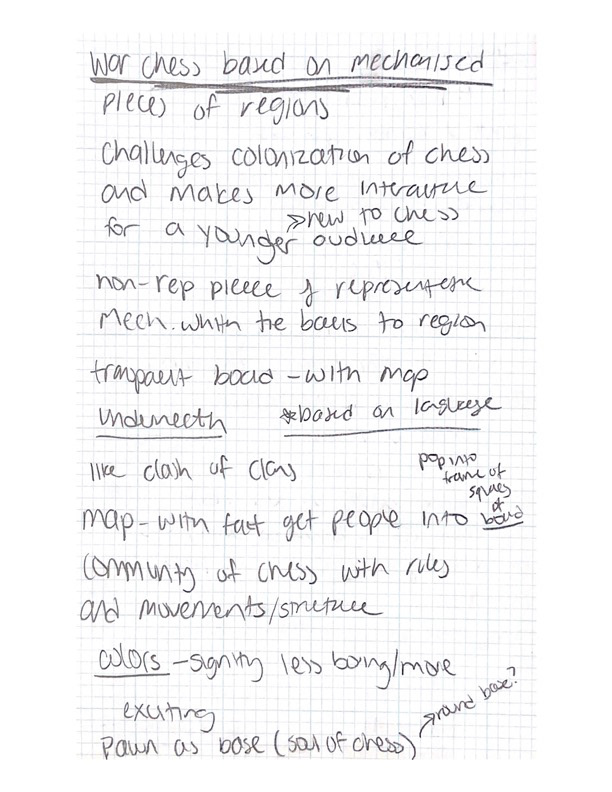 War chess based on mechanised
pieces of regions
Challenges colonization of chess
and makes more interactive
> new to chess
for a younger audience
non-rep piece of representative
Mech. within the bases to region
transparent board - with map
underneath *based on language
like clash of clans
pop into
frame of
squares
of
board
map - with fact get people into
Community of chess with rules
and movements/structure
colors - signify less boring/more
exciting
round base?
pawn as base (soul of chess)